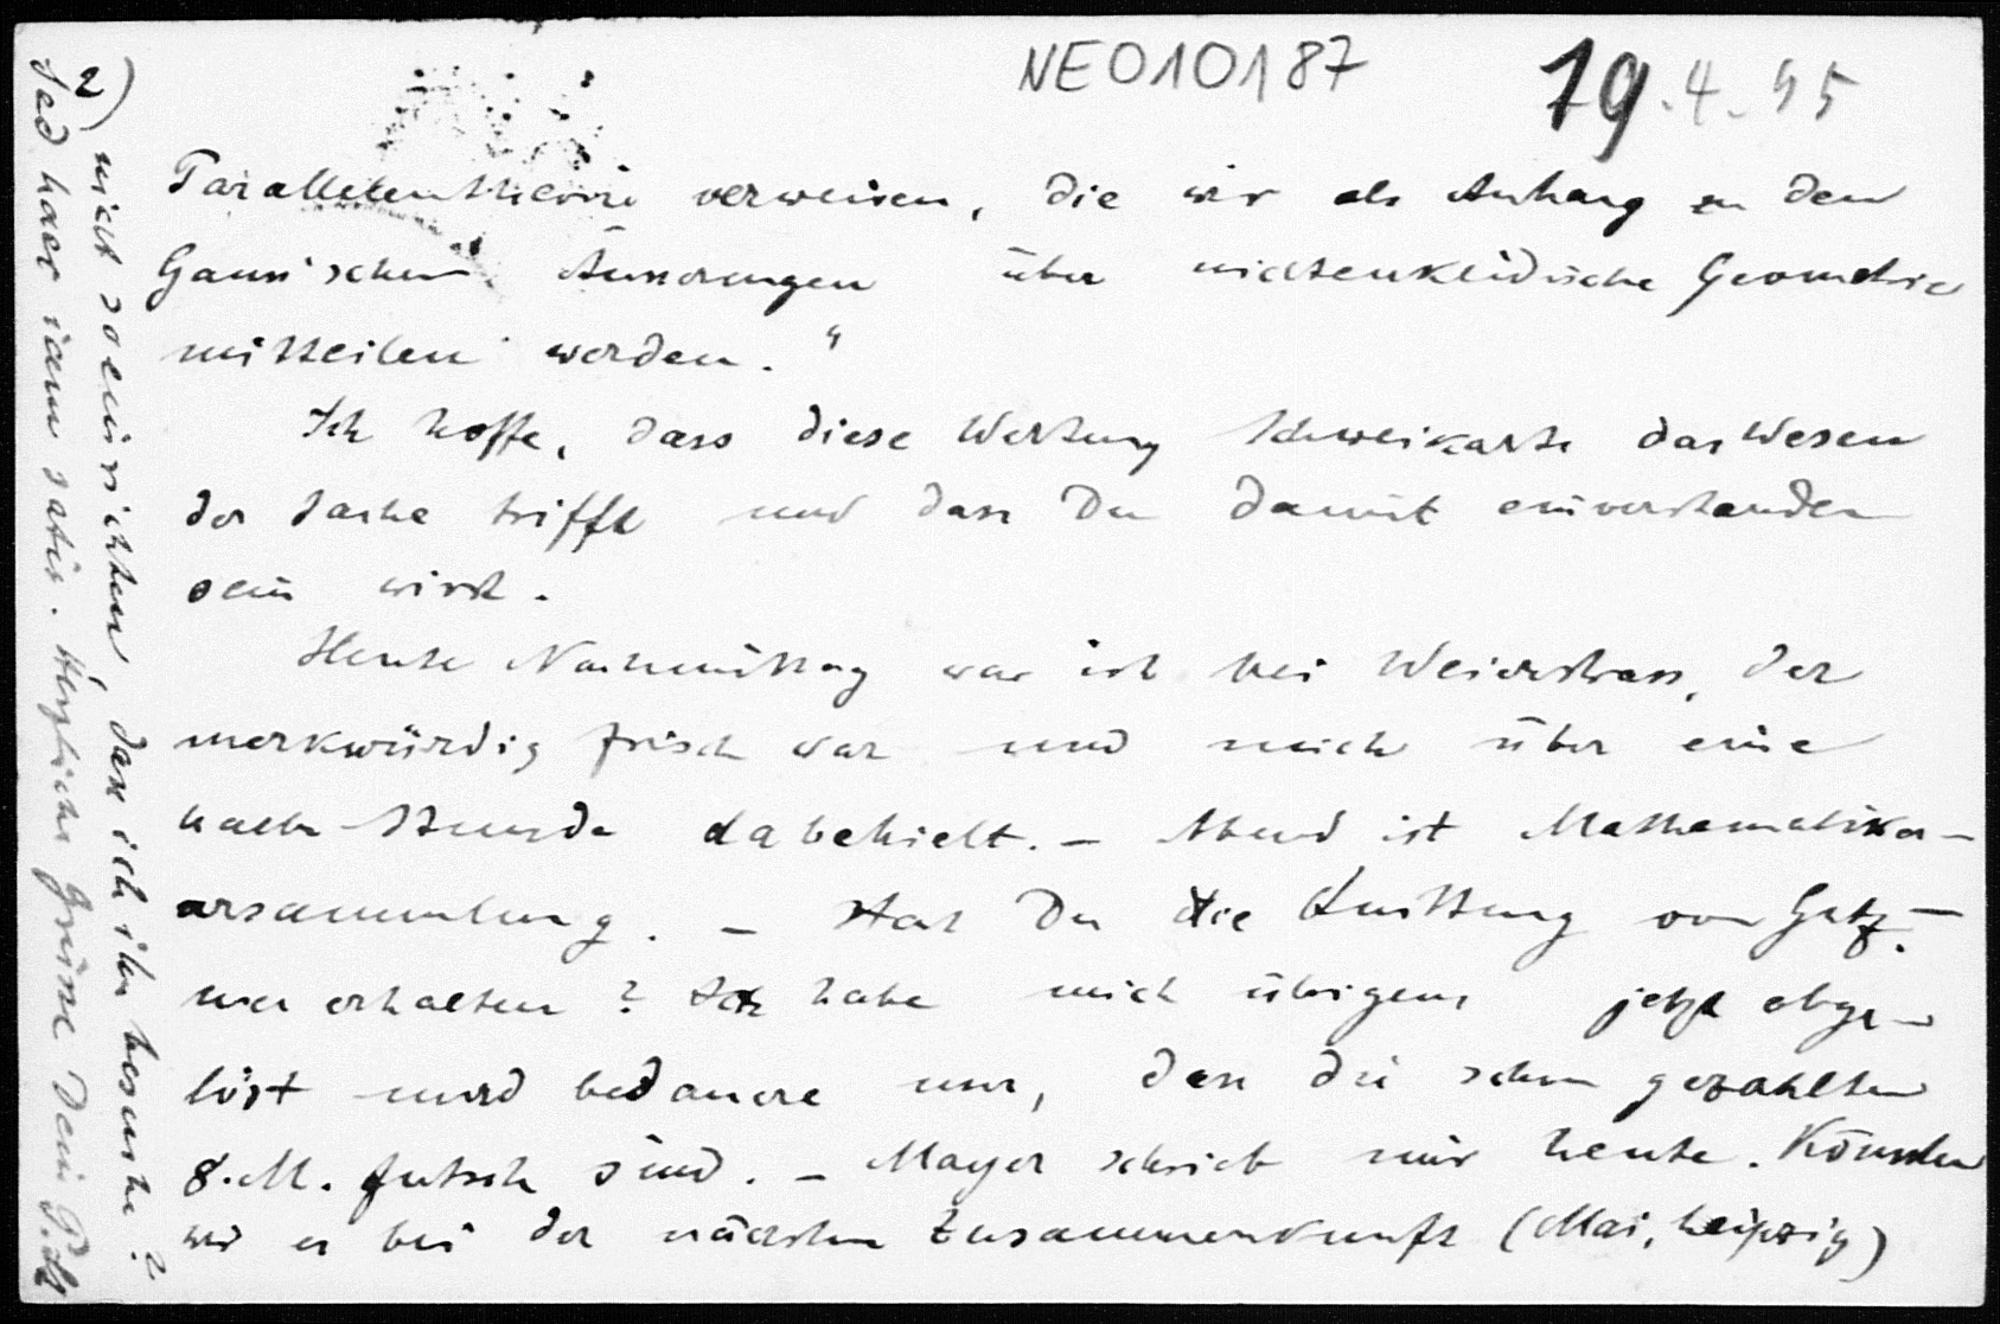 NE010187
19.4.95
Parallelentheorie verweisen, die wir als Anhang zu den
Gauss'schen Äusserungen über nichteuklidische Geometrie
mittheilen werden."
Ich hoffe, dass diese Wertung Schweikarts das Wesen
der Sache trifft und dass Du damit einverstanden
sein wirst.
Heute Nachmittag war ich bei Weierstrass, der
merkwürdig frisch war und mich über eine
halbe Stunde dabehielt. – Abend ist Mathematiker-
versammlung. – Hast Du die Quittung von Gutz-
mer erhalten? Ich habe mich übrigens jetzt abge-
löst und bedauere nur, dass die schon gezahlten
8 M. futsch sind. – Mayer schrieb mir heute. Könnten
wir es bei der nächsten Zusammenkunft (Mai, Leipzig)
2)
nicht so einrichten, dass ich ihn besuche?
Sed haec iam satis. Herzliche Grüsse Dein P.